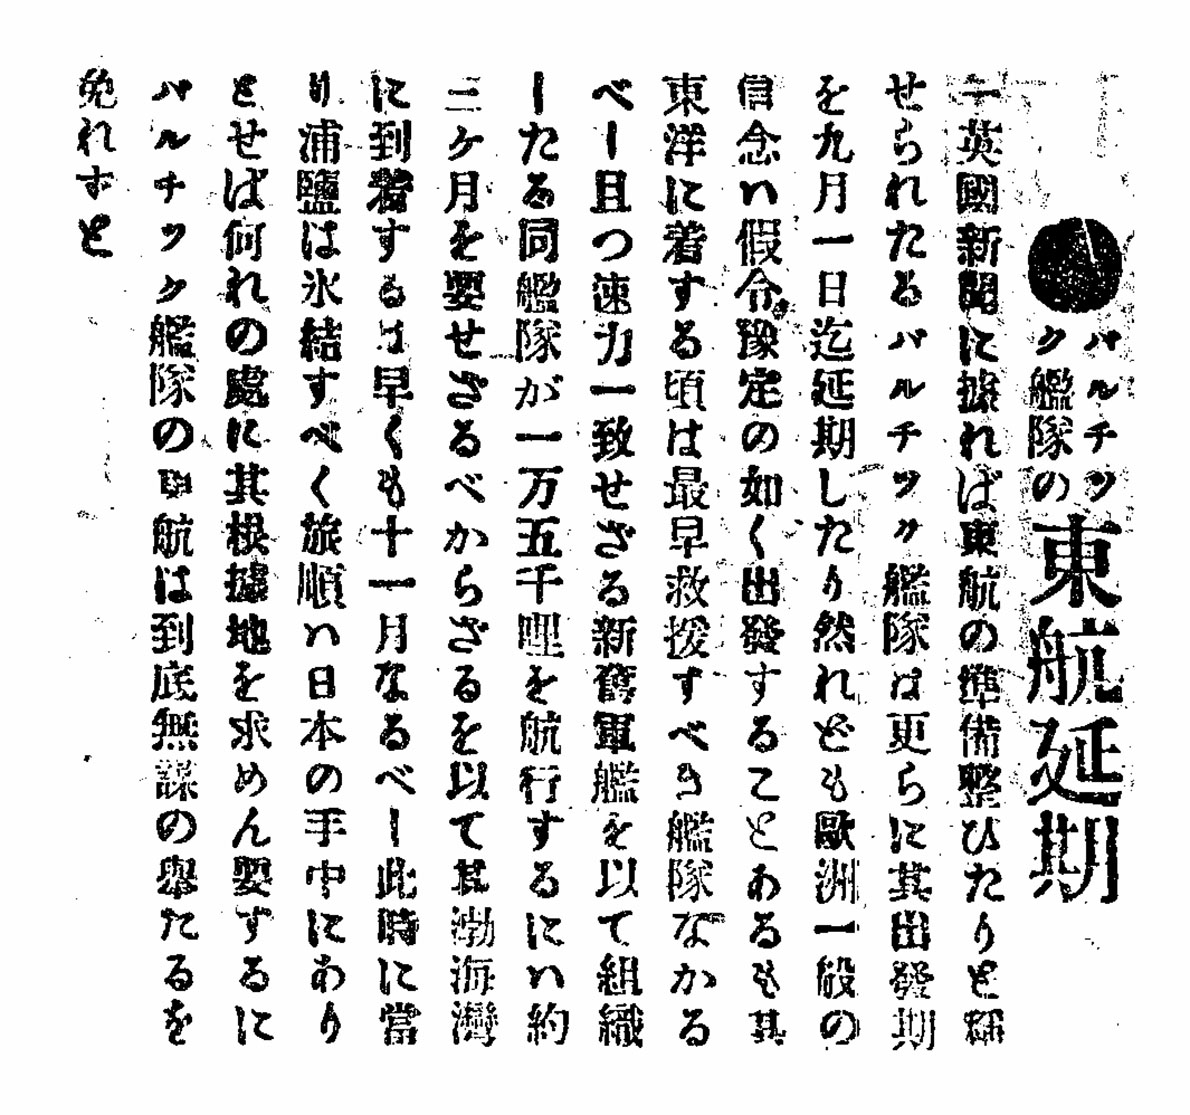 ●バルチック艦隊の東航延期
一英國新聞に據れば東航の準備整ひたりと稱
せられたるバルチック艦隊は更らに其出發期
を九月一日迄延期したり然れども歐洲一般の
信念ハ假令豫定の如く出發することあるも其
東洋に着する頃は最早救援すべき艦隊なかる
べし且つ速力一致せざる新舊軍艦を以て組織
したる同艦隊が一万五千哩を航行するにハ約
三ケ月を要せざるべからざるを以て其渤海灣
に到着するは早くも十一月なるべし此時に當
り浦鹽は氷結すべく旅順ハ日本の手中にあり
とせば何れの處に其根據地を求めん要するに
バルチック艦隊の東航は到底無謀の擧たるを
免れずと